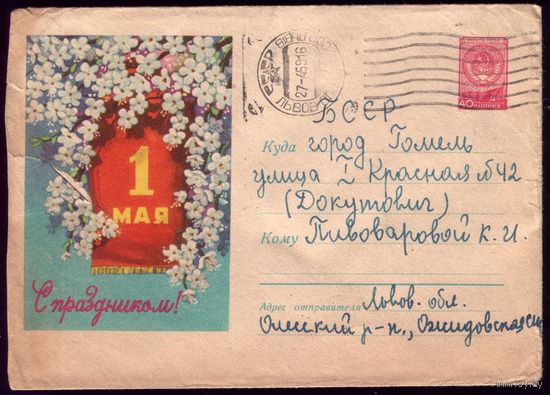 1
МАЯ
С праздником!
ЛЬВОВ
ПОЧТА СССР
40 КОПЕЕК
БССР
Куда город Гомель
улица I Красная №42
(Докутович)
Кому Пивоваровой К. И.
Адрес отправителя Львов. обл.
Олесский р-н., Ожидовская